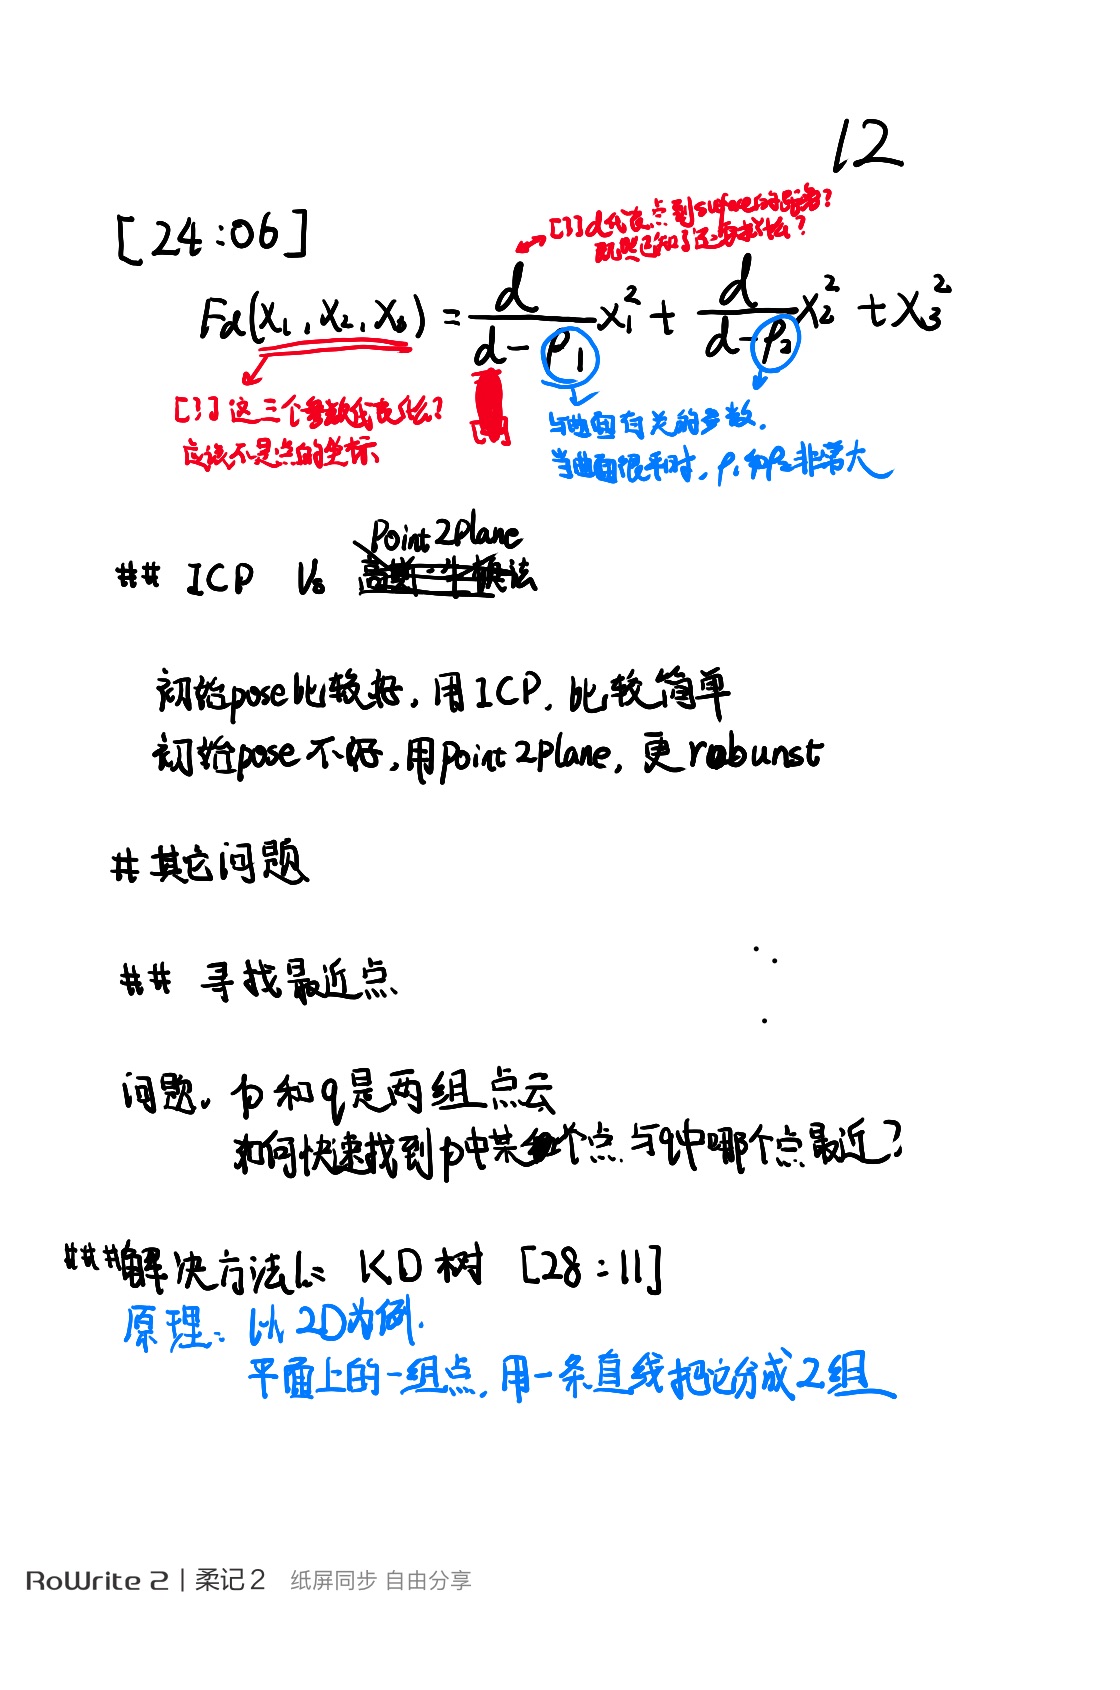 12
[24:06]
[?] d代表点到surface的距离?
既然已知了还要求什么?
Fd(x₁, x₂, x₃) = d/(d-ρ₁) x₁² + d/(d-ρ₂) x₂² + x₃²
[?] 这三个参数代表什么?
应该不是点的坐标
与曲面有关的参数.
当曲面很平时, ρ₁和ρ₂非常大
Point2Plane
## ICP Vs
初始pose比较好, 用ICP, 比较简单
初始pose不好, 用Point2Plane, 更robunst
# 其它问题
## 寻找最近点
问题. p和q是两组点云
如何快速找到p中某个点与q中哪个点最近?
###解决方法1: KD树 [28:11]
原理: 以2D为例.
平面上的一组点, 用一条直线把它分成2组
RoWrite 2 | 柔记 2 纸屏同步 自由分享